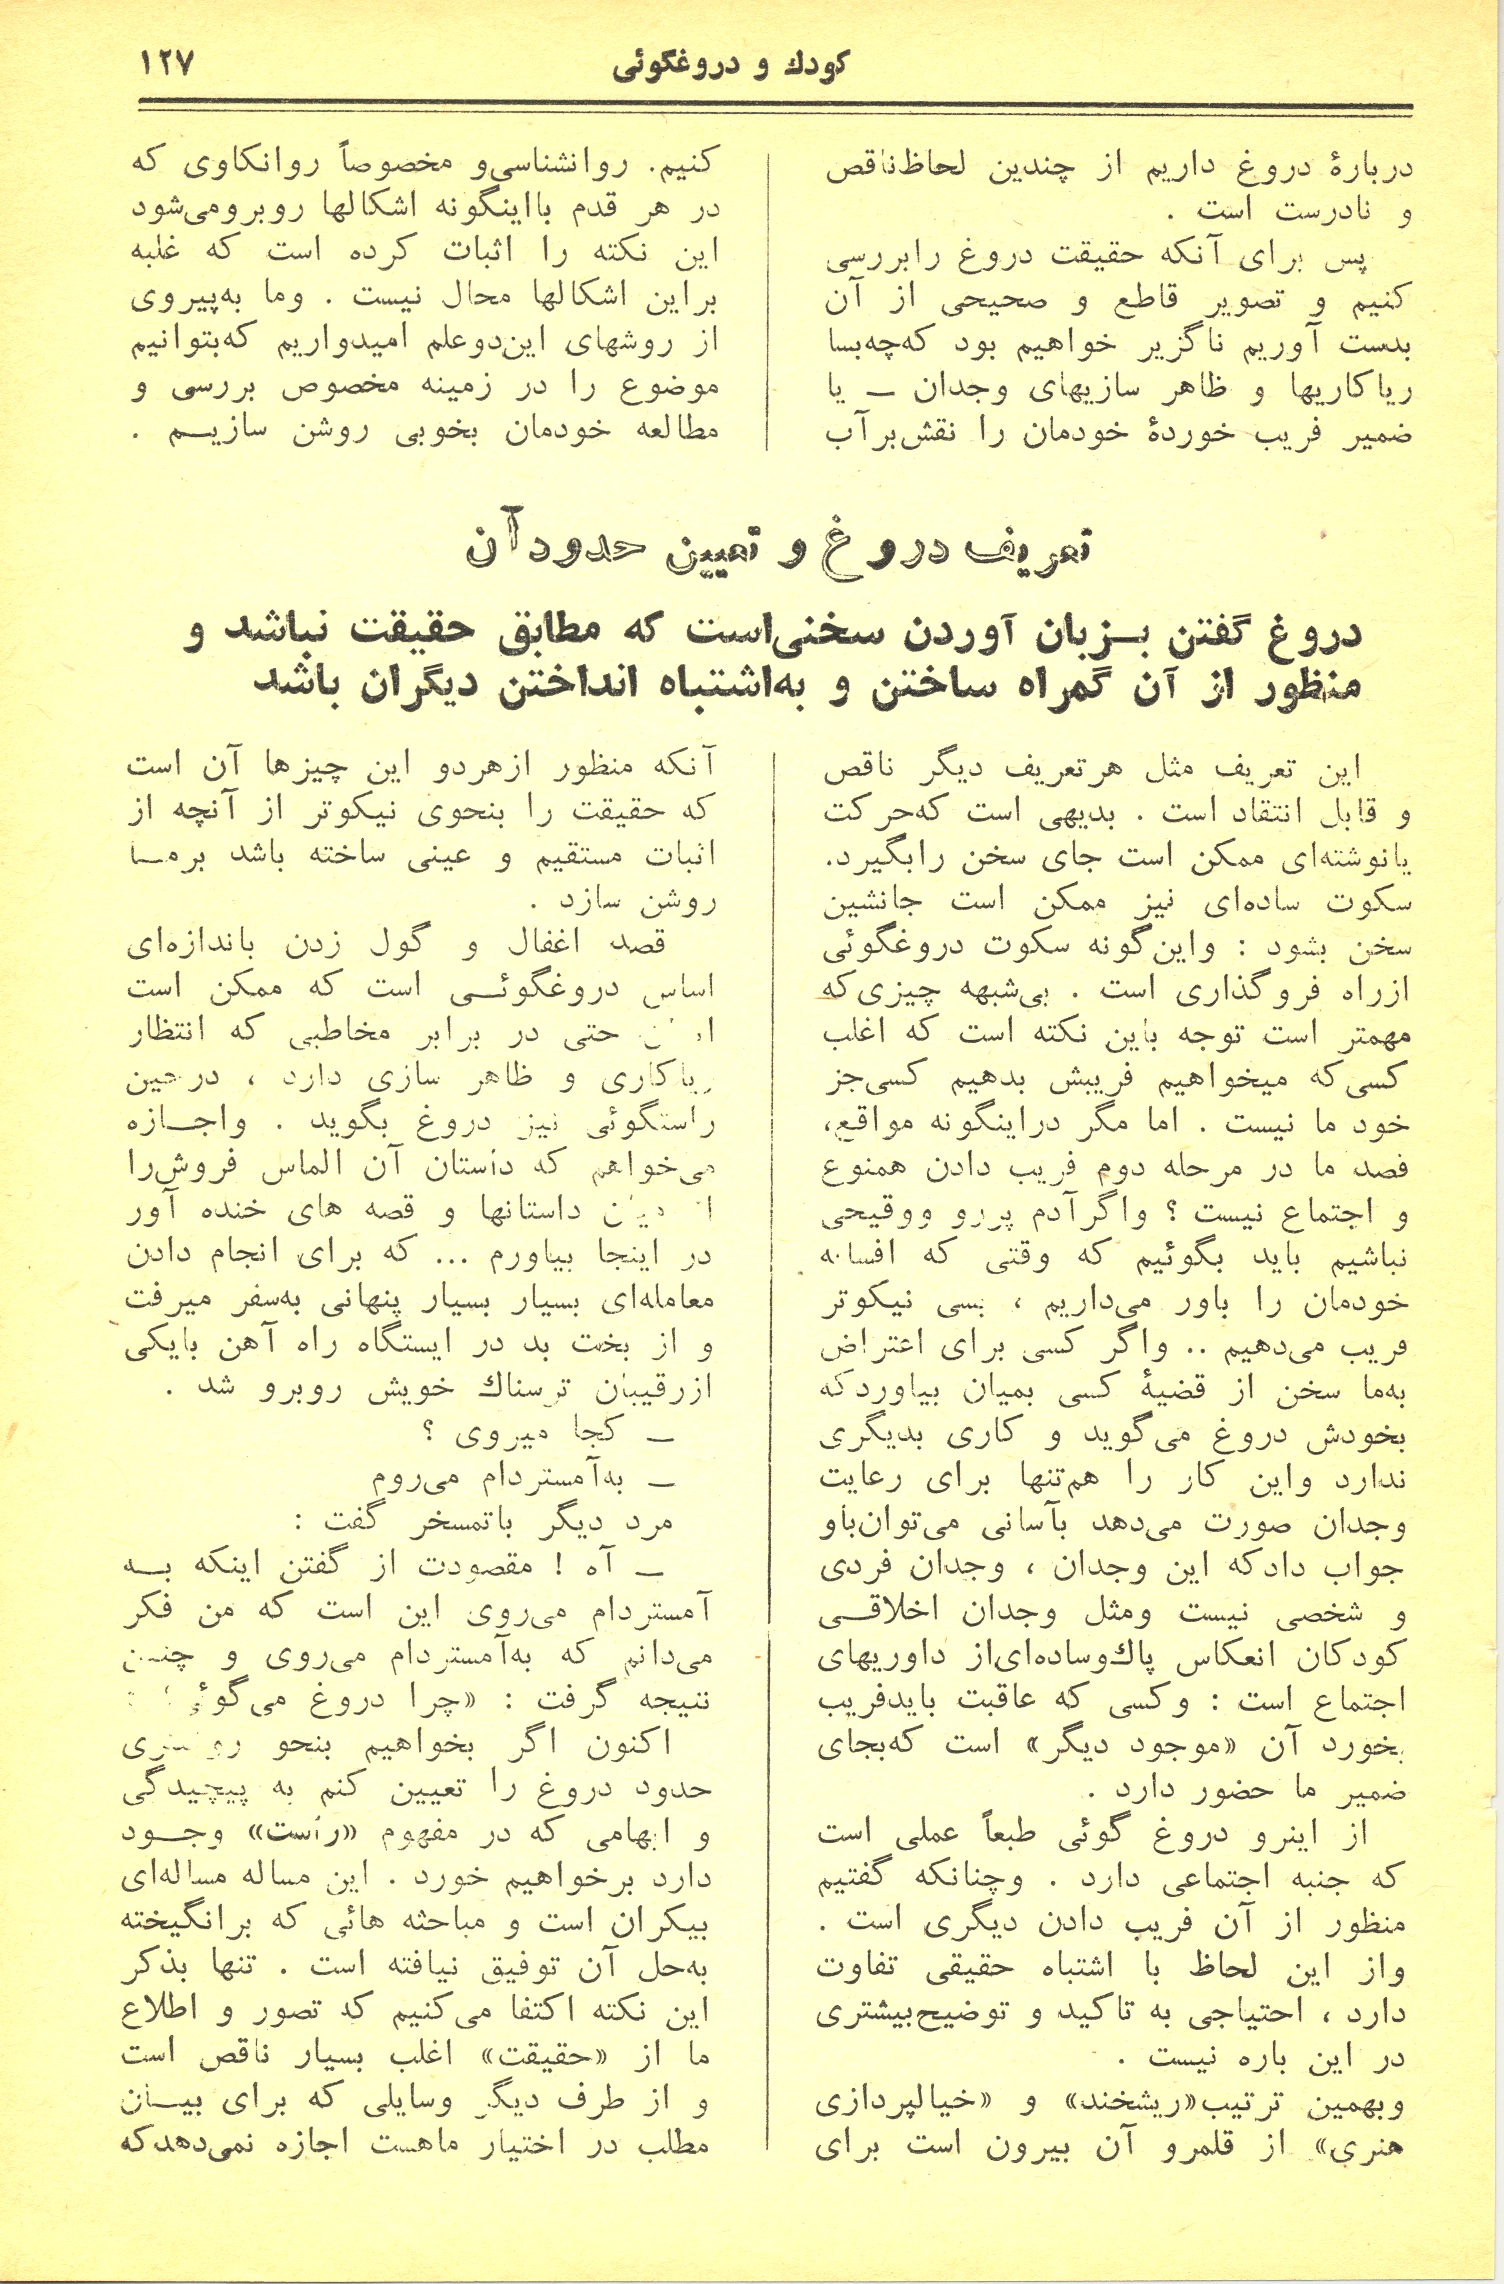 کودك و دروغگوئی
۱۲۷
دربارهٔ دروغ داریم از چندین لحاظ ناقص
و نادرست است .
پس برای آنکه حقیقت دروغ را بررسی
کنیم و تصویر قاطع و صحیحی از آن
بدست آوریم ناگزیر خواهیم بود که چه‌بسا
ریاکاریها و ظاهر سازیهای وجدان ـ یا
ضمیر فریب خوردهٔ خودمان را نقش بر آب
کنیم. روانشناسی و مخصوصاً روانکاوی که
در هر قدم با اینگونه اشکالها روبرو می‌شود
این نکته را اثبات کرده است که غلبه
بر این اشکالها محال نیست . و ما به‌پیروی
از روشهای این دو علم امیدواریم که بتوانیم
موضوع را در زمینه مخصوص بررسی و
مطالعه خودمان بخوبی روشن سازیم .
تعریف دروغ و تعیین حدود آن
دروغ گفتن بـزبان آوردن سخنی‌است که مطابق حقیقت نباشد و
منظور از آن گمراه ساختن و به‌اشتباه انداختن دیگران باشد
این تعریف مثل هر تعریف دیگر ناقص
و قابل انتقاد است . بدیهی است که حرکت
یا نوشته‌ای ممکن است جای سخن را بگیرد.
سکوت ساده‌ای نیز ممکن است جانشین
سخن بشود : و این گونه سکوت دروغگوئی
از راه فروگذاری است . بی‌شبهه چیزی که
مهمتر است توجه باین نکته است که اغلب
کسی که میخواهیم فریبش بدهیم کسی جز
خود ما نیست . اما مگر در اینگونه مواقع،
قصد ما در مرحله دوم فریب دادن همنوع
و اجتماع نیست ؟ و اگر آدم پررو و وقیحی
نباشیم باید بگوئیم که وقتی که افسانه
خودمان را باور می‌داریم ، بسی نیکوتر
فریب می‌دهیم .. و اگر کسی برای اعتراض
به‌ما سخن از قضیهٔ کسی بمیان بیاورد که
بخودش دروغ می‌گوید و کاری بدیگری
ندارد و این کار را هم‌تنها برای رعایت
وجدان صورت می‌دهد بآسانی می‌توان باو
جواب داد که این وجدان ، وجدان فردی
و شخصی نیست و مثل وجدان اخلاقـی
کودکان انعکاس پاك و ساده‌ای از داوریهای
اجتماع است : و کسی که عاقبت باید فریب
بخورد آن «موجود دیگر» است که بجای
ضمیر ما حضور دارد .
از اینرو دروغ گوئی طبعاً عملی است
که جنبه اجتماعی دارد . و چنانکه گفتیم
منظور از آن فریب دادن دیگری است .
و از این لحاظ با اشتباه حقیقی تفاوت
دارد ، احتیاجی به تاکید و توضیح بیشتری
در این باره نیست .
و بهمین ترتیب «ریشخند» و «خیالپردازی
هنری» از قلمرو آن بیرون است برای
آنکه منظور از هر دو این چیزها آن است
که حقیقت را بنحوی نیکوتر از آنچه از
اثبات مستقیم و عینی ساخته باشد بر مـا
روشن سازد .
قصد اغفال و گول زدن باندازه‌ای
اساس دروغگوئـی است که ممکن است
حتی در برابر مخاطبی که انتظار
ریاکاری و ظاهر سازی دارد ، در حین
راستگوئی نیز دروغ بگوید . و اجـازه
می‌خواهم که داستان آن الماس فروش را
از میان داستانها و قصه های خنده آور
در اینجا بیاورم ... که برای انجام دادن
معامله‌ای بسیار بسیار پنهانی به‌سفر میرفت
و از بخت بد در ایستگاه راه آهن با یکی
از رقیبان ترسناك خویش روبرو شد .
ـ کجا میروی ؟
ـ به‌آمستردام می‌روم
مرد دیگر با تمسخر گفت :
ـ آه ! مقصودت از گفتن اینکه بـه
آمستردام می‌روی این است که من فکر
می‌دانم که به‌آمستردام می‌روی و چنین
نتیجه گرفت : «چرا دروغ
اکنون اگر بخواهیم بنحو
حدود دروغ را تعیین کنم به پیچیدگی
و ابهامی که در مفهوم «راست» وجـود
دارد برخواهیم خورد . این مساله مساله‌ای
بیکران است و مباحثه هائی که برانگیخته
به‌حل آن توفیق نیافته است . تنها بذکر
این نکته اکتفا می‌کنیم که تصور و اطلاع
ما از «حقیقت» اغلب بسیار ناقص است
و از طرف دیگر وسایلی که برای بیـان
مطلب در اختیار ماهست اجازه نمی‌دهد که